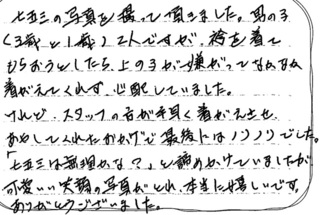 七五三の写真を撮って頂きました。男の子
(3歳と1歳)2人ですが、袴を着て
もらおうとしたら、上の子が嫌がってなかなか
着がえてくれず、心配していました。
けれど、スタッフの方が手早く着がえさせ
あやしてくれたおかげで最後にはノリノリでした。
「七五三は無理かな?」と諦めかけていましたが
可愛いい笑顔の写真がとれ、本当に嬉しいです。
ありがとうございました。